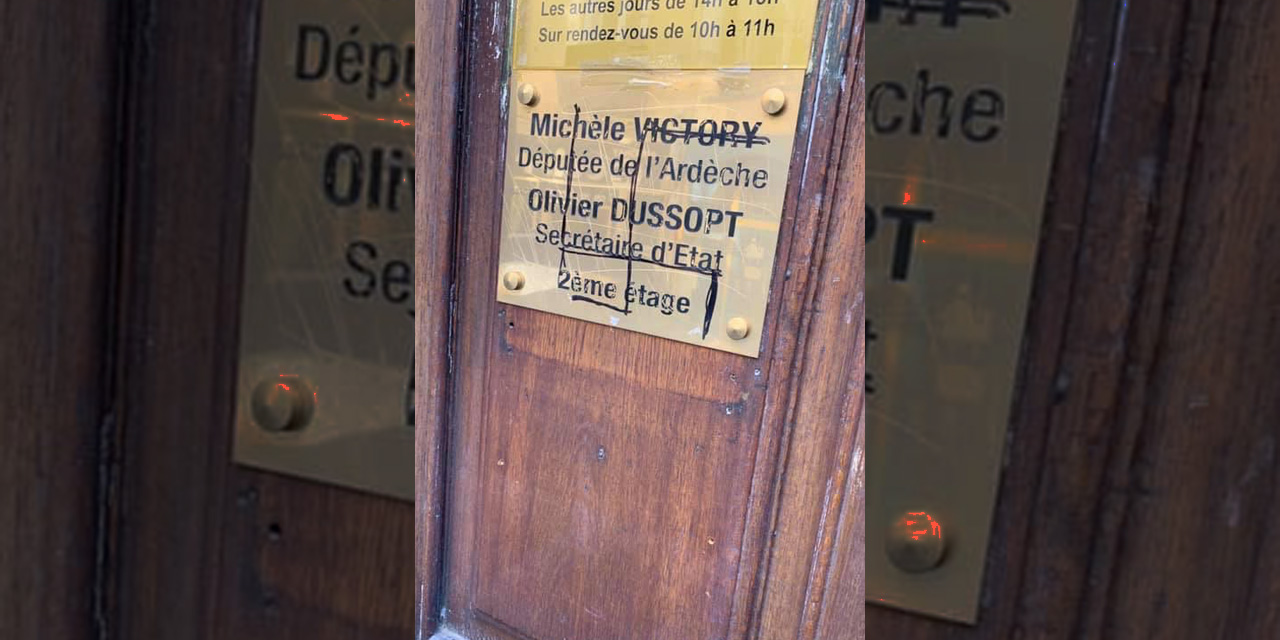 Les autres jours de 14h à 18h
Sur rendez-vous de 10h à 11h
Michèle VICTORY
Députée de l'Ardèche
Olivier DUSSOPT
Secrétaire d'Etat
2ème étage